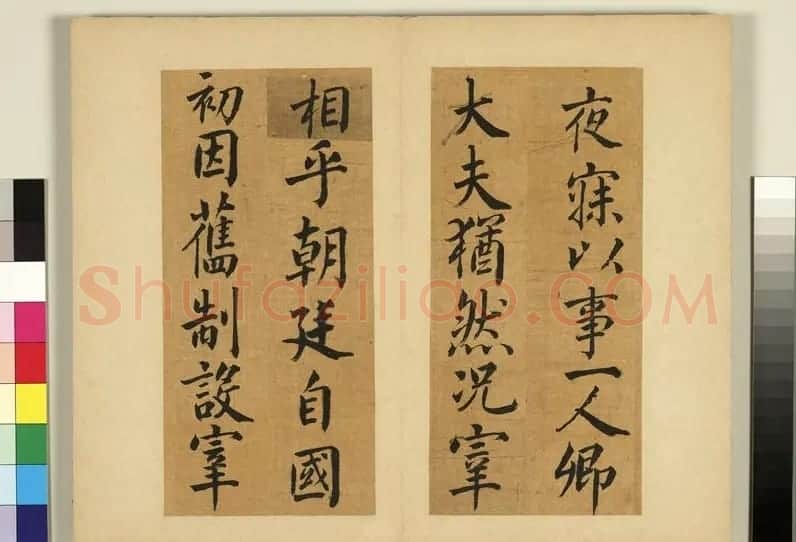 夜寐以事一人卿
大夫猶然况宰
相乎朝廷自國
初因舊制設宰
Shufaziliao.COM